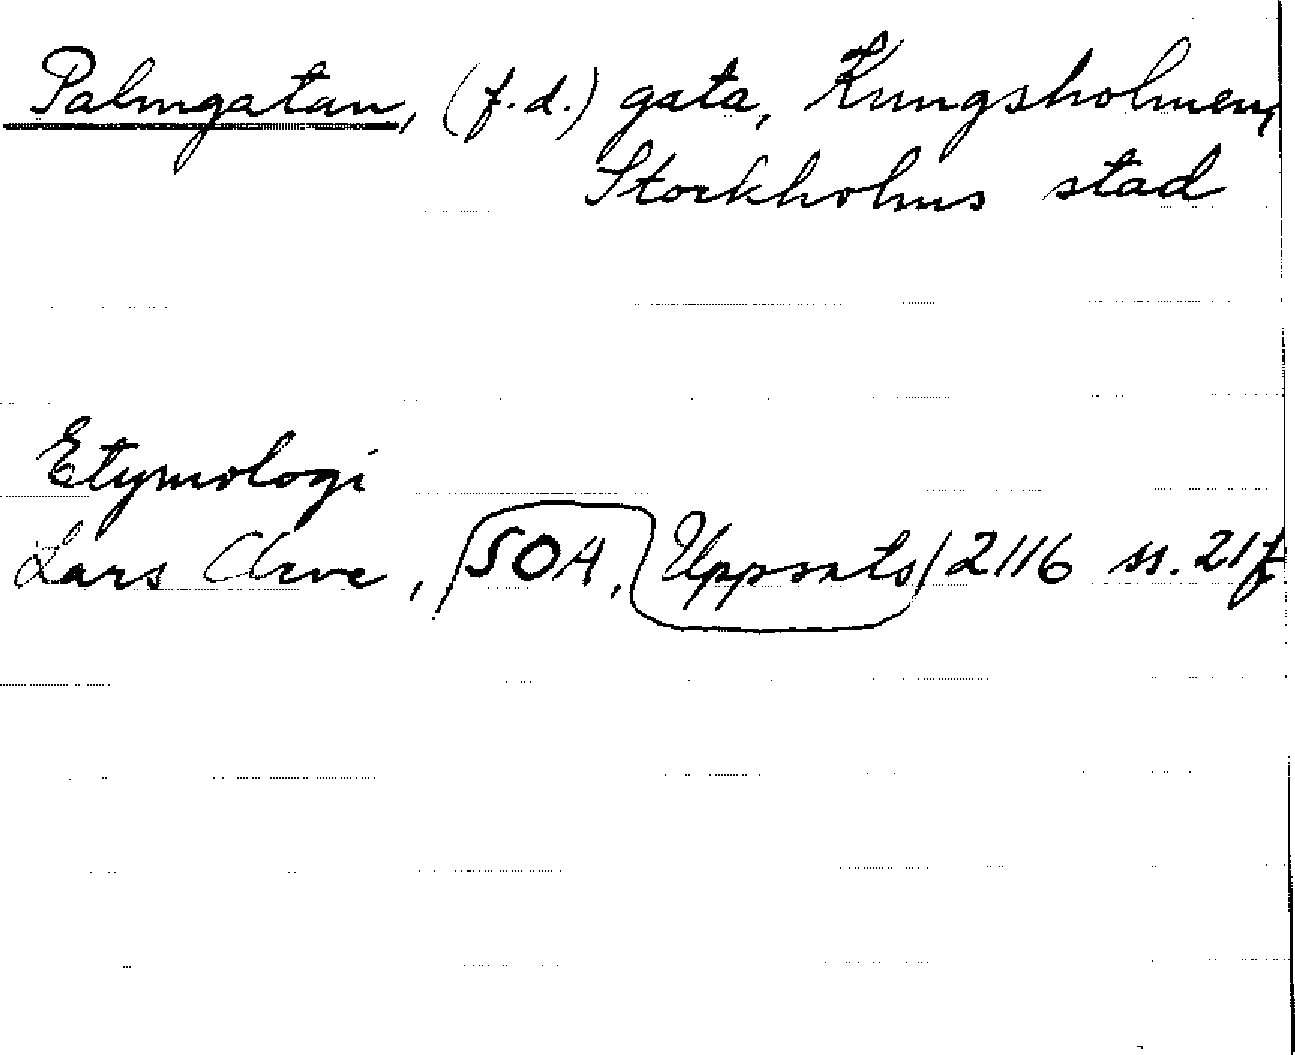 Palmgatan, (f.d.) gata, Kungsholmen,
Stockholms stad
Etymologi
Lars Arve, SOA, Uppsats 2116 ss. 21f